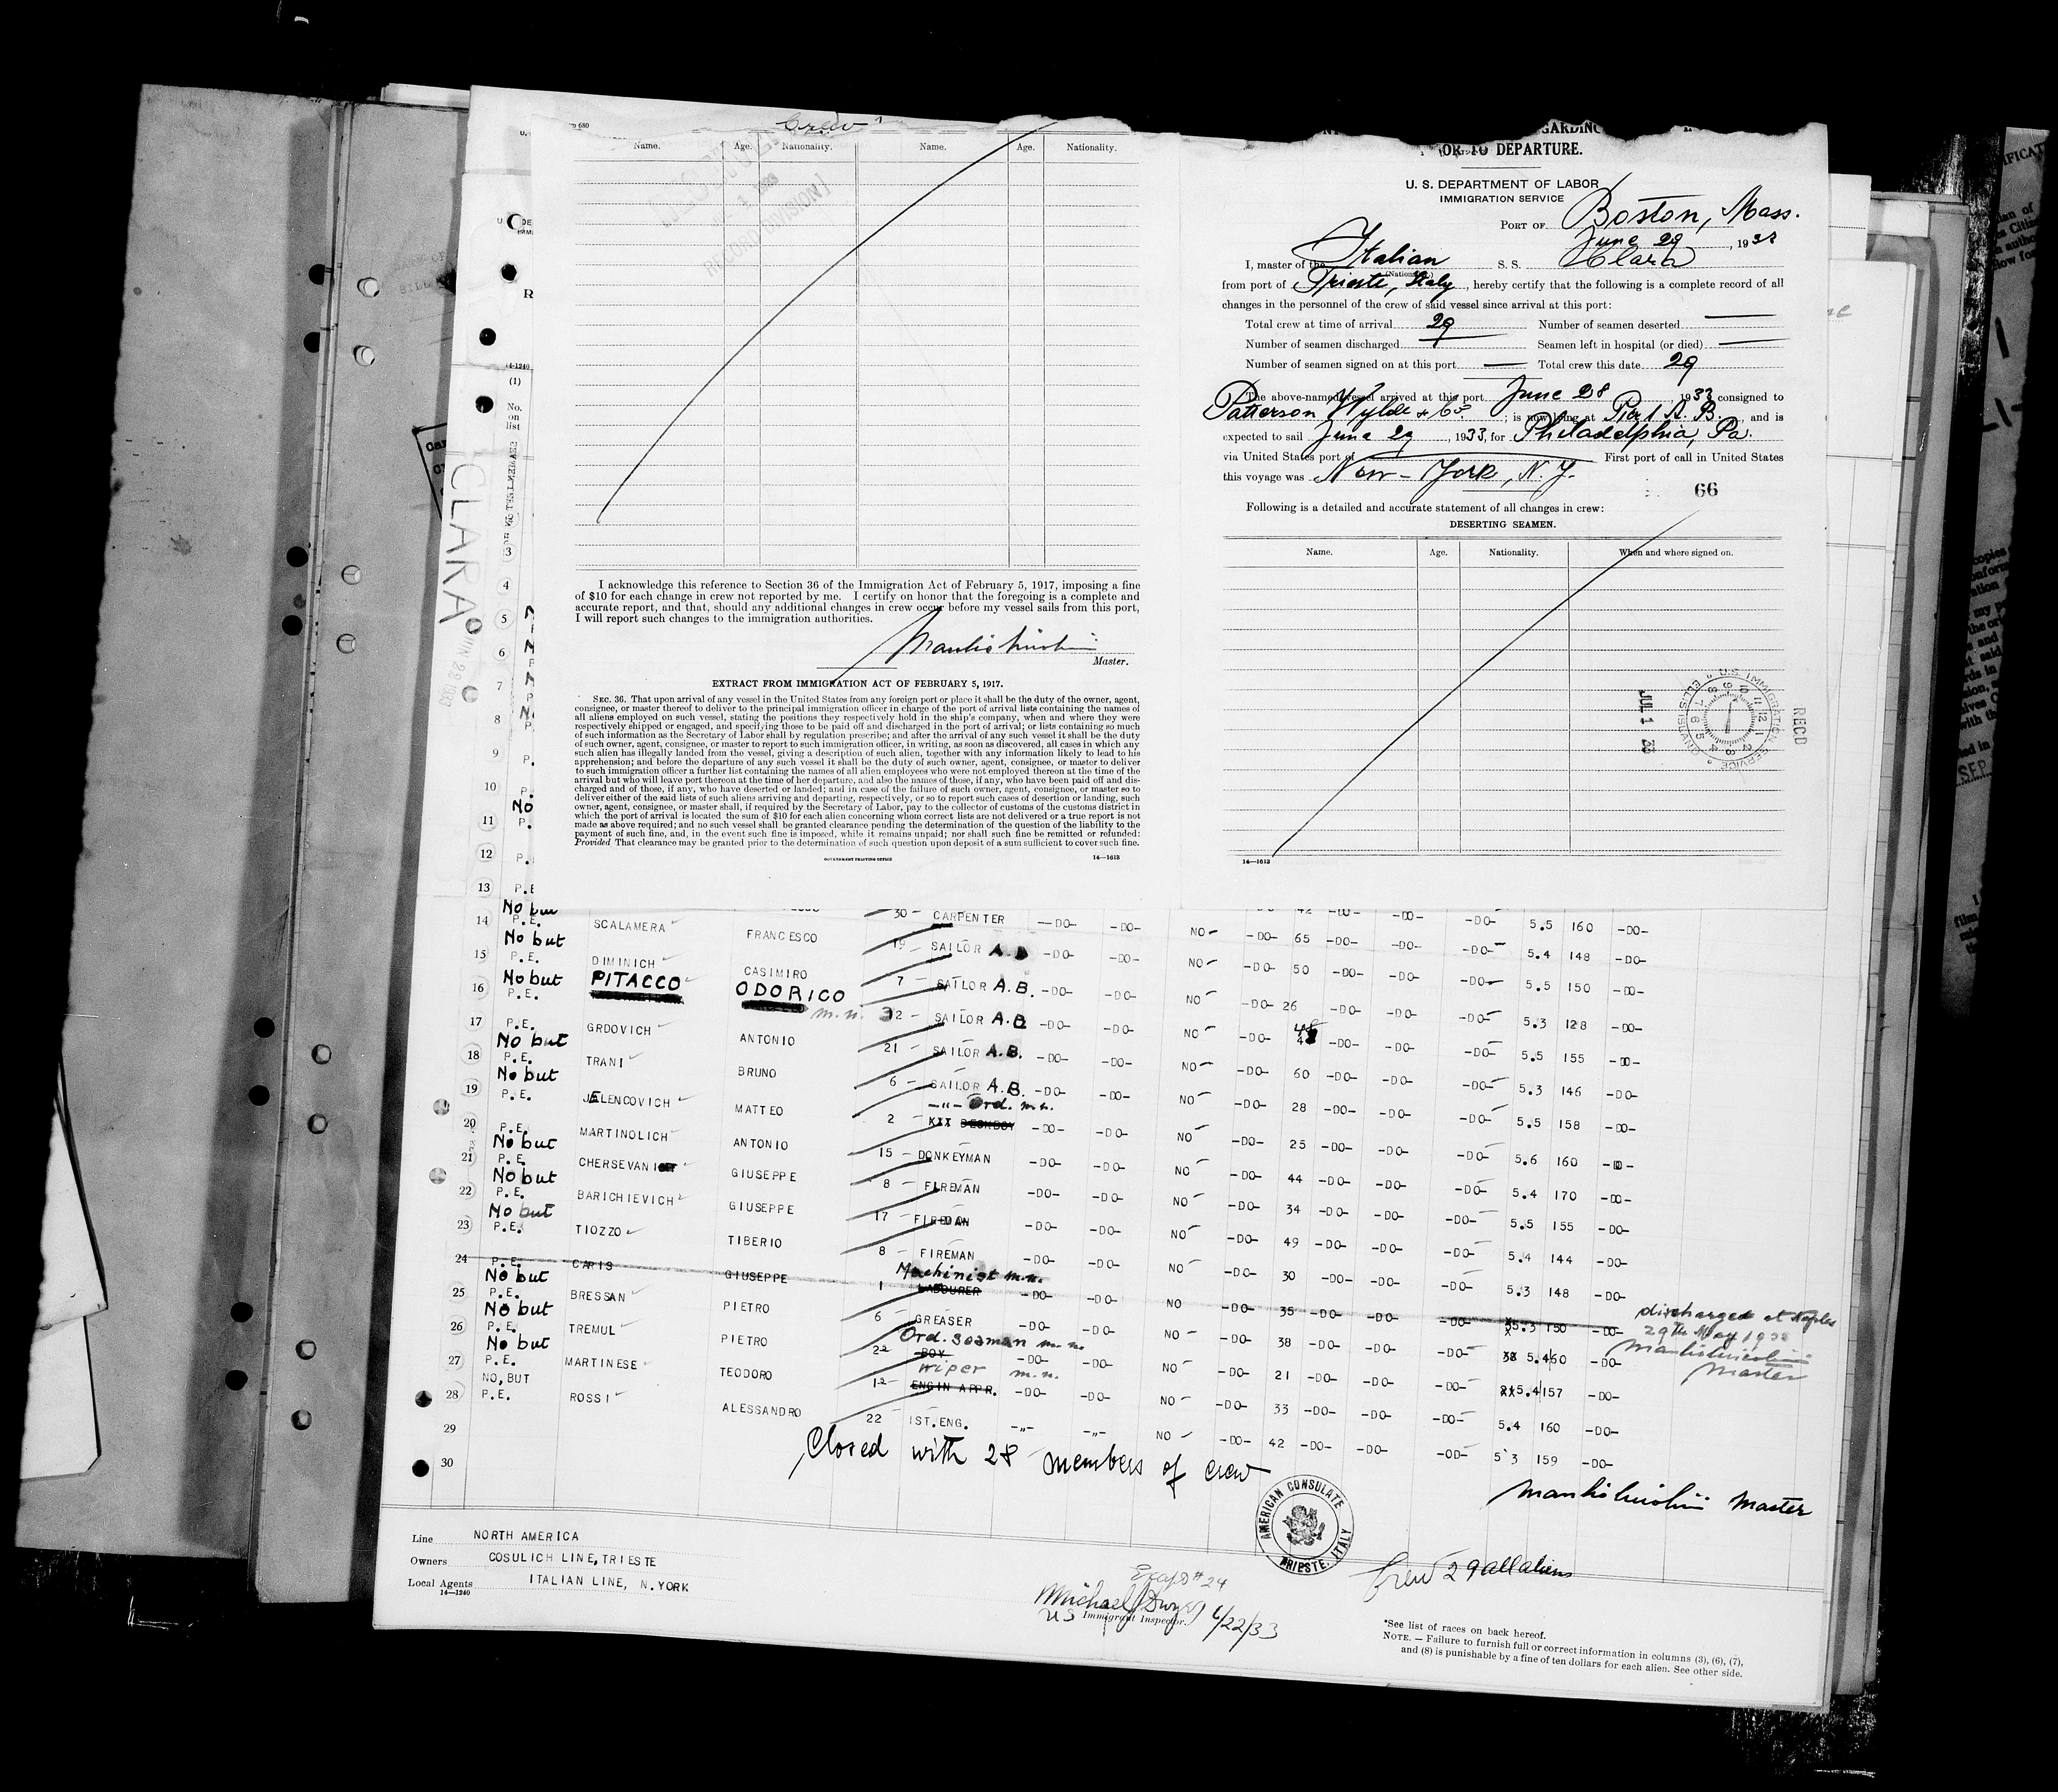 Crew
Name. Age. Nationality. Name. Age. Nationality.
RECORD DIVISION
I acknowledge this reference to Section 36 of the Immigration Act of February 5, 1917, imposing a fine
of $10 for each change in crew not reported by me. I certify on honor that the foregoing is a complete and
accurate report, and that, should any additional changes in crew occur before my vessel sails from this port,
I will report such changes to the immigration authorities.
Master.
EXTRACT FROM IMMIGRATION ACT OF FEBRUARY 5, 1917.
SEC. 36. That upon arrival of any vessel in the United States from any foreign port or place it shall be the duty of the owner, agent,
consignee, or master thereof to deliver to the principal immigration officer in charge of the port of arrival lists containing the names of
all aliens employed on such vessel, stating the positions they respectively hold in the ship's company, when and where they were
respectively shipped or engaged, and specifying those to be paid off and discharged in the port of arrival; or lists containing so much
of such information as the Secretary of Labor shall by regulation prescribe; and after the arrival of any such vessel it shall be the duty
of such owner, agent, consignee, or master to report to such immigration officer, in writing, as soon as discovered, all cases in which any
such alien has illegally landed from the vessel, giving a description of such alien, together with any information likely to lead to his
apprehension; and before the departure of any such vessel it shall be the duty of such owner, agent, consignee, or master to deliver
to such immigration officer a further list containing the names of all alien employees who were not employed thereon at the time of the
arrival but who will leave port thereon at the time of her departure, and also the names of those, if any, who have been paid off and dis-
charged and of those, if any, who have deserted or landed; and in case of the failure of such owner, agent, consignee, or master so to
deliver either of the said lists of such aliens arriving and departing, respectively, or so to report such cases of desertion or landing, such
owner, agent, consignee, or master shall, if required by the Secretary of Labor, pay to the collector of customs of the customs district in
which the port of arrival is located the sum of $10 for each alien concerning whom correct lists are not delivered or a true report is not
made as above required; and no such vessel shall be granted clearance pending the determination of the question of the liability to the
payment of such fine, and, in the event such fine is imposed, while it remains unpaid; nor shall such fine be remitted or refunded:
Provided That clearance may be granted prior to the determination of such question upon deposit of a sum sufficient to cover such fine.
GOVERNMENT PRINTING OFFICE 14—1613
OR TO DEPARTURE.
U. S. DEPARTMENT OF LABOR
IMMIGRATION SERVICE
PORT OF Boston, Mass.
June 29, 1933
I, master of the Italian S. S. Clara
from port of Trieste, Italy, hereby certify that the following is a complete record of all
changes in the personnel of the crew of said vessel since arrival at this port:
Total crew at time of arrival 29 Number of seamen deserted —
Number of seamen discharged — Seamen left in hospital (or died) —
Number of seamen signed on at this port — Total crew this date 29
The above-named vessel arrived at this port June 28 1933 consigned to
Patterson Wylde & Co, is now lying at Pier 1 A. B., and is
expected to sail June 29, 1933, for Philadelphia, Pa.
via United States port of — First port of call in United States
this voyage was New-York, N. Y.
66
Following is a detailed and accurate statement of all changes in crew:
DESERTING SEAMEN.
Name. Age. Nationality. When and where signed on.
U.S. IMMIGRATION SERVICE ELLIS ISLAND
JUL 1 33
RECD
14—1613
CLARA
14-1240
(1)
No.
on
list
3
4
5
6
7
8
9
10
11
12
13 P.E
No but 30 CARPENTER —DO— —DO— 42 —DO— —DO— —DO— 5.5 160 —DO—
14 P.E. SCALAMERA FRANCESCO NO —DO— 65 —DO— —DO— —DO—
No but 19 SAILOR A.B —DO— —DO— 5.4 148 —DO—
15 P.E. DIMINICH CASIMIRO NO —DO— 50 —DO— —DO— —DO—
No but PITACCO ODORICO 7 SAILOR A.B. —DO— —DO— 5.5 150 —DO—
16 P.E. m.n. 32 SAILOR A.B NO —DO— 26 —DO— —DO— —DO— 5.3 128 —DO—
17 P.E. GRDOVICH ANTONIO NO —DO— 48 —DO— —DO— —DO—
No but 21 SAILOR A.B. —DO— —DO— 5.5 155 —DO—
18 P.E. TRANI BRUNO NO —DO— 60 —DO— —DO— —DO—
No but 6 SAILOR A.B. —DO— —DO— 5.3 146 —DO—
19 P.E. JELENCOVICH MATTEO NO —DO— 28 —DO— —DO— —DO—
—"— Ord. m.n.
2 XXX DECKBOY —DO— —DO— 5.5 158 —DO—
20 P.E. MARTINOLICH ANTONIO NO —DO— 25 —DO— —DO— —DO—
No but 15 DONKEYMAN —DO— —DO— 5.6 160 —DO—
21 P.E. CHERSEVANI GIUSEPPE NO —DO— 44 —DO— —DO— —DO—
No but 8 FIREMAN —DO— —DO— 5.4 170 —DO—
22 P.E. BARICHIEVICH GIUSEPPE NO —DO— 34 —DO— —DO— —DO—
No but 17 FIREMAN —DO— —DO— 5.5 155 —DO—
23 P.E. TIOZZO TIBERIO NO —DO— 49 —DO— —DO— —DO—
8 FIREMAN —DO— —DO— 5.4 144 —DO—
24 P.E. CARIS GIUSEPPE NO —DO— 30 —DO— —DO— —DO— 5.3 148 —DO—
Machinist m.n.
No but 1 LABOURER —DO— —DO—
25 P.E. BRESSAN PIETRO NO —DO— 35 —DO— —DO— —DO— 5.3 150 —DO—
discharged at Naples
29th May 1933
Master
No but 6 GREASER —DO— —DO—
26 P.E. TREMUL PIETRO NO —DO— 38 —DO— —DO— —DO— 5.4 60 —DO—
Ord. seaman m.n.
No but 22 BOY —DO— —DO—
27 P.E. MARTINESE TEODORO NO —DO— 21 —DO— —DO— —DO— 5.4 157 —DO—
wiper m.n.
NO, BUT 12 ENGIN APPR. —DO— —DO—
28 P.E. ROSSI ALESSANDRO NO —DO— 33 —DO— —DO— —DO— 5.4 160 —DO—
29 22 IST.ENG. —"— —"— NO —DO— 42 —DO— —DO— —OD— 5'3 159 —DO—
30 Closed with 28 members of crew
Master
AMERICAN CONSULATE TRIESTE, ITALY
Line NORTH AMERICA
Owners COSULICH LINE, TRIESTE
Local Agents ITALIAN LINE, N.YORK
14—1240
Except #24
US Immigrant Inspector. 6/22/33
Crew 29 all aliens
*See list of races on back hereof.
NOTE. — Failure to furnish full or correct information in columns (3), (6), (7),
and (8) is punishable by a fine of ten dollars for each alien. See other side.